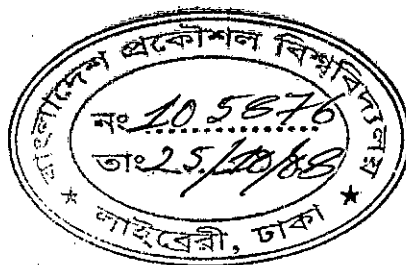 বাংলাদেশ প্রকৌশল বিশ্ববিদ্যালয়
নং 105876
তাং 25/10/88
★ লাইব্রেরী, ঢাকা ★